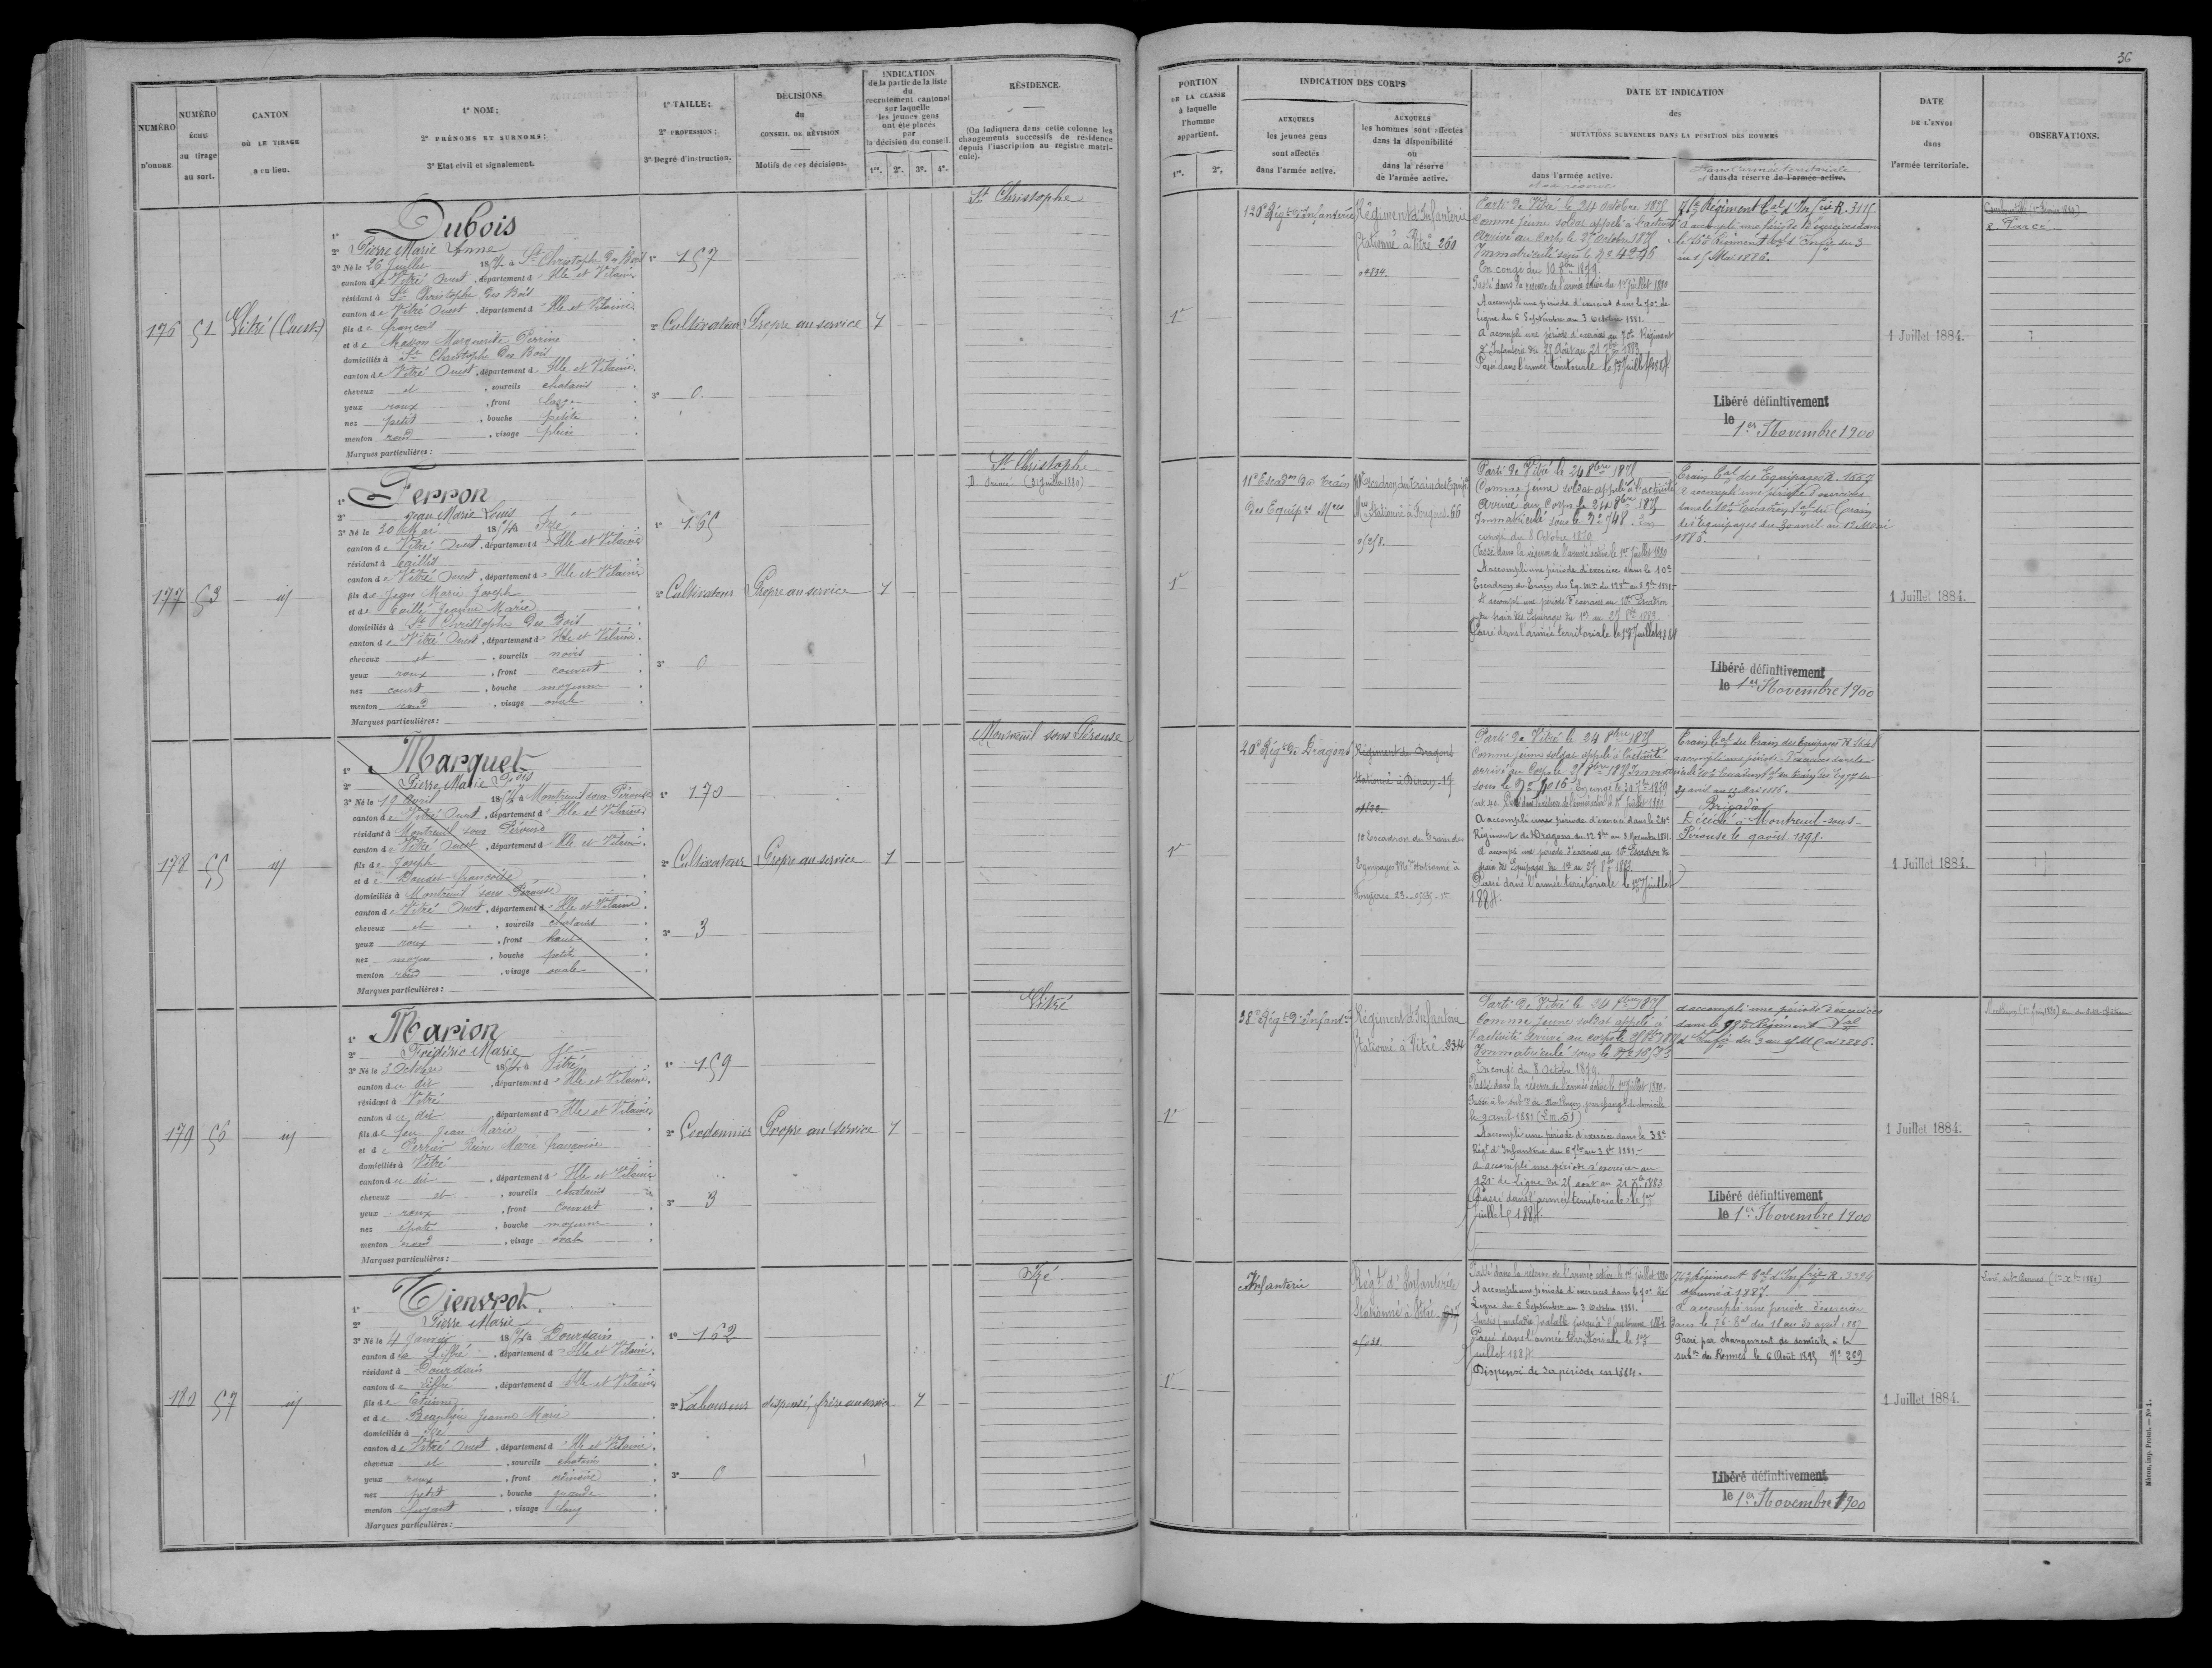 36
NUMÉRO D'ORDRE
NUMÉRO ÉCHU au tirage au sort.
CANTON OÙ LE TIRAGE a eu lieu.
1º NOM;
2º PRÉNOMS ET SURNOMS;
3º Etat civil et signalement.
1º TAILLE;
2º PROFESSION;
3º Degré d'instruction.
DÉCISIONS du CONSEIL DE RÉVISION
Motifs de ces décisions.
INDICATION
de la partie de la liste
du
recrutement cantonal
sur laquelle
les jeunes gens
ont été placés
par
la décision du conseil.
1re. 2e. 3e. 4e.
RÉSIDENCE.
(On indiquera dans cette colonne les
changements successifs de résidence
depuis l'inscription au registre matri-
cule).
PORTION
DE LA CLASSE
à laquelle
l'homme
appartient.
1re. 2e.
INDICATION DES CORPS
AUXQUELS
les jeunes gens
sont affectés
dans l'armée active.
AUXQUELS
les hommes sont affectés
dans la disponibilité
ou
dans la réserve
de l'armée active.
DATE ET INDICATION
des
MUTATIONS SURVENUES DANS LA POSITION DES HOMMES
dans l'armée active.
et sa réserve
Dans l'armée territoriale
et dans la réserve de l'armée active.
DATE
DE L'ENVOI
dans
l'armée territoriale.
OBSERVATIONS.
176
51
Vitré (Ouest)
1º Dubois
2º Pierre Marie Anne
3º Né le 26 Juillet 1854 à St Christophe des Bois
canton de Vitré Ouest, département d'Ille et Vilaine
résidant à St Christophe des Bois
canton de Vitré Ouest, département d'Ille et Vilaine
fils de François
et de Masson Marguerite Perrine
domiciliés à St Christophe des Bois
canton de Vitré Ouest, département d'Ille et Vilaine.
cheveux et, sourcils chatains
yeux roux, front large
nez petit, bouche petite
menton rond, visage plein
Marques particulières:
1º 157
2º Cultivateur
3º 0.
Propre au service
1
St Christophe
1re
120e Régt d'Infanterie
Régiment d'Infanterie
Stationné à Vitré 260
Parti de Vitré le 24 octobre 1875
Comme jeune soldat appelé à l'activité
Arrivé au Corps le 25 octobre 1875
Immatriculé sous le Nº 4245
En congé du 10 8bre 1879.
Passé dans la réserve de l'armée active du 1er Juillet 1880
A accompli une période d'exercices dans le 70e de
Ligne du 6 Septembre au 3 octobre 1881.
A accompli une période d'exercices au 70e Régiment
d'Infanterie du 25 Août au 21 7bre 1883
Passé dans l'armée territoriale le 1er Juillet 1884.
76e Régiment tal d'Infrie R. 3115
A accompli une période d'exercices dans
au 15 Mai 1886.
Libéré définitivement
le 1er Novembre 1900
1 Juillet 1884.
177
53
id
1º Ferron
2º Jean Marie Louis
3º Né le 30 Mai 1854 à Izé
canton de Vitré Ouest, département d'Ille et Vilaine
résidant à Taillis
canton de Vitré Ouest, département d'Ille et Vilaine
fils de Jean Marie Joseph
et de Caillé Jeanne Marie
domiciliés à St Christophe des Bois
canton de Vitré Ouest, département d'Ille et Vilaine.
cheveux et, sourcils noirs
yeux roux, front couvert
nez court, bouche moyenne
menton rond, visage ovale
Marques particulières:
1º 165
2º Cultivateur
3º 0
Propre au service
1
St Christophe
D. Princé (21 Juillet 1880)
1re
11e Escadron du Train
des Equipes Mres
10e Escadron du Train des Equipes
Mres Stationné à Fougères 66
Parti de Vitré le 24 8bre 1875
Comme jeune soldat appelé à l'activité
Arrivé au Corps le 24 8bre 1875
Immatriculé sous le Nº 748. En
congé du 8 Octobre 1879
Passé dans la réserve de l'armée active le 1er Juillet 1880
A accompli une période d'exercice dans le 10e
Escadron du Train des Eq. Mres du 12 8bre au 8 9bre 1881
A accompli une période d'exercices au 10e Escadron
du train des Equipages du 13 au 27 8bre 1883.
Passé dans l'armée territoriale le 1er Juillet 1884
Train tal des Equipages R. 1667
A accompli une période d'exercices
dans le 10e Escadron tal du Train
des Equipages du 30 avril au 12 Mai
1886.
Libéré définitivement
le 1er Novembre 1900
1 Juillet 1884.
178
55
id
1º Marquet
2º Pierre Marie
3º Né le 19 avril 1854 à Montreuil sous Pérouse
canton de Vitré Ouest, département d'Ille et Vilaine
résidant à Montreuil sous Pérouse
canton de Vitré Ouest, département d'Ille et Vilaine.
fils de Joseph
et de Baudet Françoise
domiciliés à Montreuil sous Pérouse
canton de Vitré Ouest, département d'Ille et Vilaine.
cheveux et, sourcils chatains
yeux roux, front haut
nez moyen, bouche petite
menton rond, visage ovale
Marques particulières:
1º 170
2º Cultivateur
3º 3
Propre au service
1
Montreuil sous Pérouse
1re
20e Régt de Dragons
Régiment de Dragons
Stationné à Dinan. 15
10 Escadron du Train des
Equipages Mres Stationné à
Fougères 23.
Parti de Vitré le 24 8bre 1875
Comme jeune soldat appelé à l'activité
arrivé au Corps le 25 8bre 1875 Immatriculé
A accompli une période d'exercice dans le 24e
Régiment de Dragons du 12 8bre au 8 Novembre 1881.
A accompli une période d'exercices au 10e Escadron du
train des Equipages du 13 au 27 8bre 1883.
Passé dans l'armée territoriale le 1er Juillet
1884.
29 avril au 12 Mai 1886.
Brigadier
Décédé à Montreuil-sous-
Pérouse le 9 août 1898.
1 Juillet 1884.
179
56
id
1º Marion
2º Frédéric Marie
3º Né le 3 Octobre 1854 à Vitré
canton du dit, département d'Ille et Vilaine.
résidant à Vitré
canton du dit, département d'Ille et Vilaine
fils de feu Jean Marie
et de Perrier Reine Marie Françoise
domiciliés à Vitré
canton du dit, département d'Ille et Vilaine
cheveux et, sourcils chatains
yeux roux, front couvert
nez épaté, bouche moyenne
menton rond, visage ovale
Marques particulières:
1º 159
2º Cordonnier
3º 3
Propre au Service
1
Vitré
1re
38e Régt d'Infantrie
Régiment d'Infanterie
Stationné à Vitré. 334
Parti de Vitré le 24 8bre 1875
Comme jeune soldat appelé à
l'activité arrivé au corps le
Immatriculé sous le Nº
En congé du 8 Octobre 1879.
Passé dans la réserve de l'armée active le 1er Juillet 1880.
le 9 avril 1881
A accompli une période d'exercice dans le 38e
Régt d'Infanterie du 6 7bre au 3 8bre 1881.
A accompli une période d'exercices au
121e de Ligne du 25 aout au 21 7bre 1883
Passé dans l'armée territoriale le 1er
Juillet 1884.
A accompli une période d'exercices
dans le 98e Régiment tal
d'Infie du 3 au 15 Mai 1886.
Libéré définitivement
le 1er Novembre 1900
1 Juillet 1884.
180
57
id
1º Tienvrot.
2º Pierre Marie
3º Né le 4 Janvier 1854 à Dourdain
canton de Liffré, département d'Ille et Vilaine.
résidant à Dourdain
canton de Liffré, département d'Ille et Vilaine
fils de Etienne
et de Jeanne Marie
domiciliés à Izé
canton de Vitré Ouest, département d'Ille et Vilaine.
cheveux et, sourcils chatains
yeux roux, front ordinaire
nez petit, bouche grande
menton fuyant, visage long
Marques particulières:
1º 162
2º Laboureur
3º 0
dispensé, frère au service
1
Izé.
1re
Infanterie
Régt d'Infanterie
Stationné à Vitré.
Passé dans la réserve de l'armée active le 1er juillet 1880
A accompli une période d'exercices dans le 70e de
Ligne du 6 Septembre au 3 octobre 1881.
Passé dans l'armée territoriale le 1er
juillet 1884
Dispensé de sa période en 1884.
76e Régiment tal d'Infrie R. 3324
Ajourné à 1887.
A accompli une période d'exercices
dans le 76e tal du 18 au 30 avril 1887
Passé par changement de domicile à la
subon de Rennes le 6 Août 1895 Nº 269
Libéré définitivement
le 1er Novembre 1900
1 Juillet 1884.
Mâcon, imp. Protat. — Nº 1.